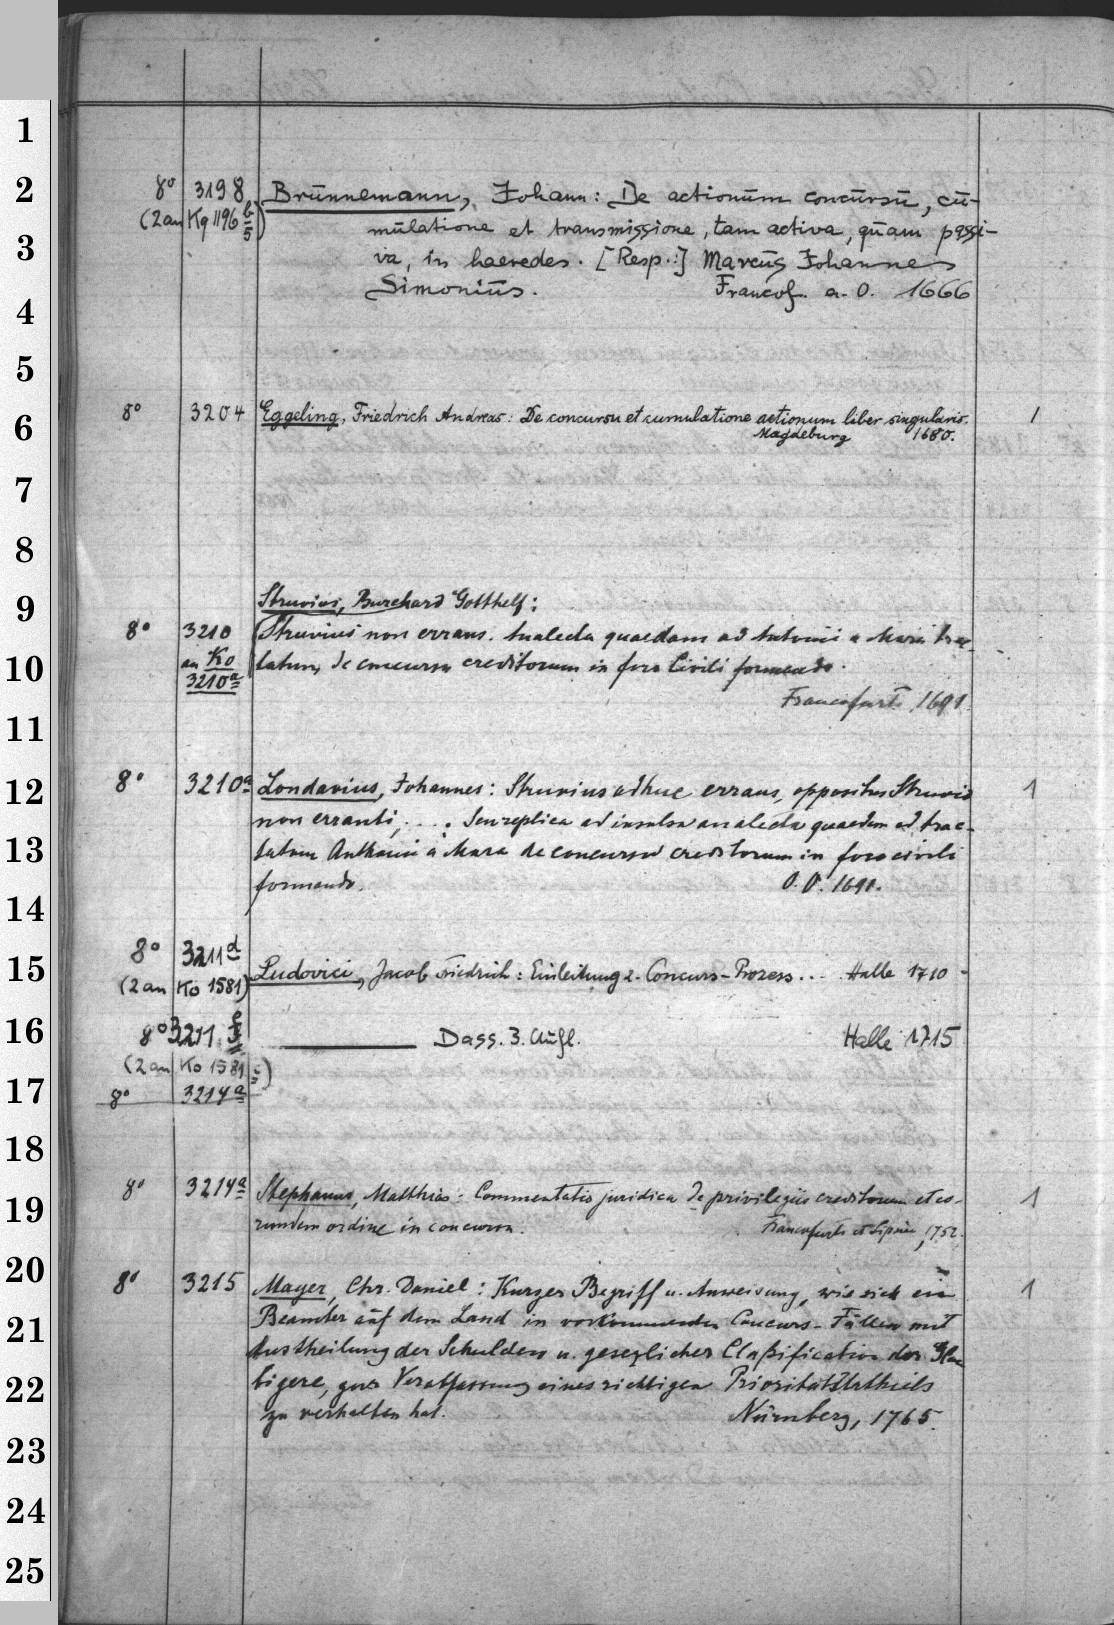 1
2
3
4
5
6
7
8
9
10
11
12
13
14
15
16
17
18
19
20
21
22
23
24
25
8° 3198 Brunnemann, Johann: De actionum concursu, cu-
(2 an Kq 1196 b/5) mulatione et transmissione, tam activa, quam passi-
va, in haeredes. [Resp.:] Marcus Johannes
Simonius. Francof. a. O. 1666
8° 3204 Eggeling, Friedrich Andreas: De concursu et cumulatione actionum liber singularis. 1
Magdeburg 1680.
Struvius, Burchard Gotthelf:
8° 3210 Struvius non errans. Analecta quaedam ad Antonii a Mara trac-
an Ko tatum, de concursu creditorum in foro civili formando.
3210a
Francofurti 1691
8° 3210a Londavius, Johannes: Struvius adhuc errans, oppositus Struvio 1
non erranti, . . . Seu replica ad insulsa analecta quaedam ad trac-
tatum Anthonii à Mara de concursu creditorum in foro civili
formando. O. O. 1691.
8° 3211d
(2 an Ko 1581) Ludovici, Jacob Friedrich: Einleitung z. Concurs-Prozess . . . Halle 1710
8° 3211 f Dass. 3. Aufl. Halle 1715
(2 an Ko 1581 c)
8° 3214a
8° 3214a Stephanus, Matthias: Commentatio juridica de privilegiis creditorum et eo- 1
rundem ordine in concursu. Francofurti et Lipsiae, 1752.
8° 3215 Mayer, Chr. Daniel: Kurzer Begriff u. Anweisung, wie sich ein 1
Beamter auf dem Land in vorkommenden Concurs-Fällen mit
Austheilung der Schulden u. gesezlicher Claßification der Glau-
bigere, zur Verabfassung eines richtigen Prioritäts Urtheils
zu verhalten hat. Nürnberg, 1765.